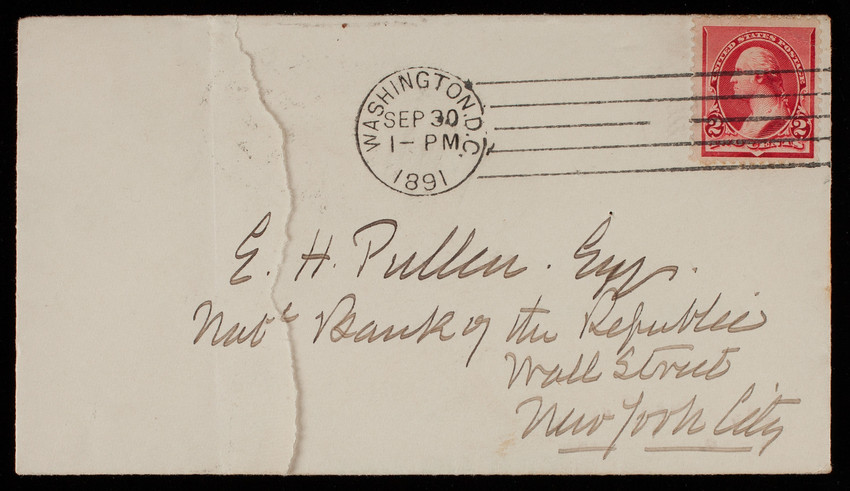 WASHINGTON, D.C.
SEP 30
1 - PM
1891
UNITED STATES POSTAGE
2 2
TWO CENTS
E. H. Pullen. Esq.
Natl Bank of the Republic
Wall Street
New York City